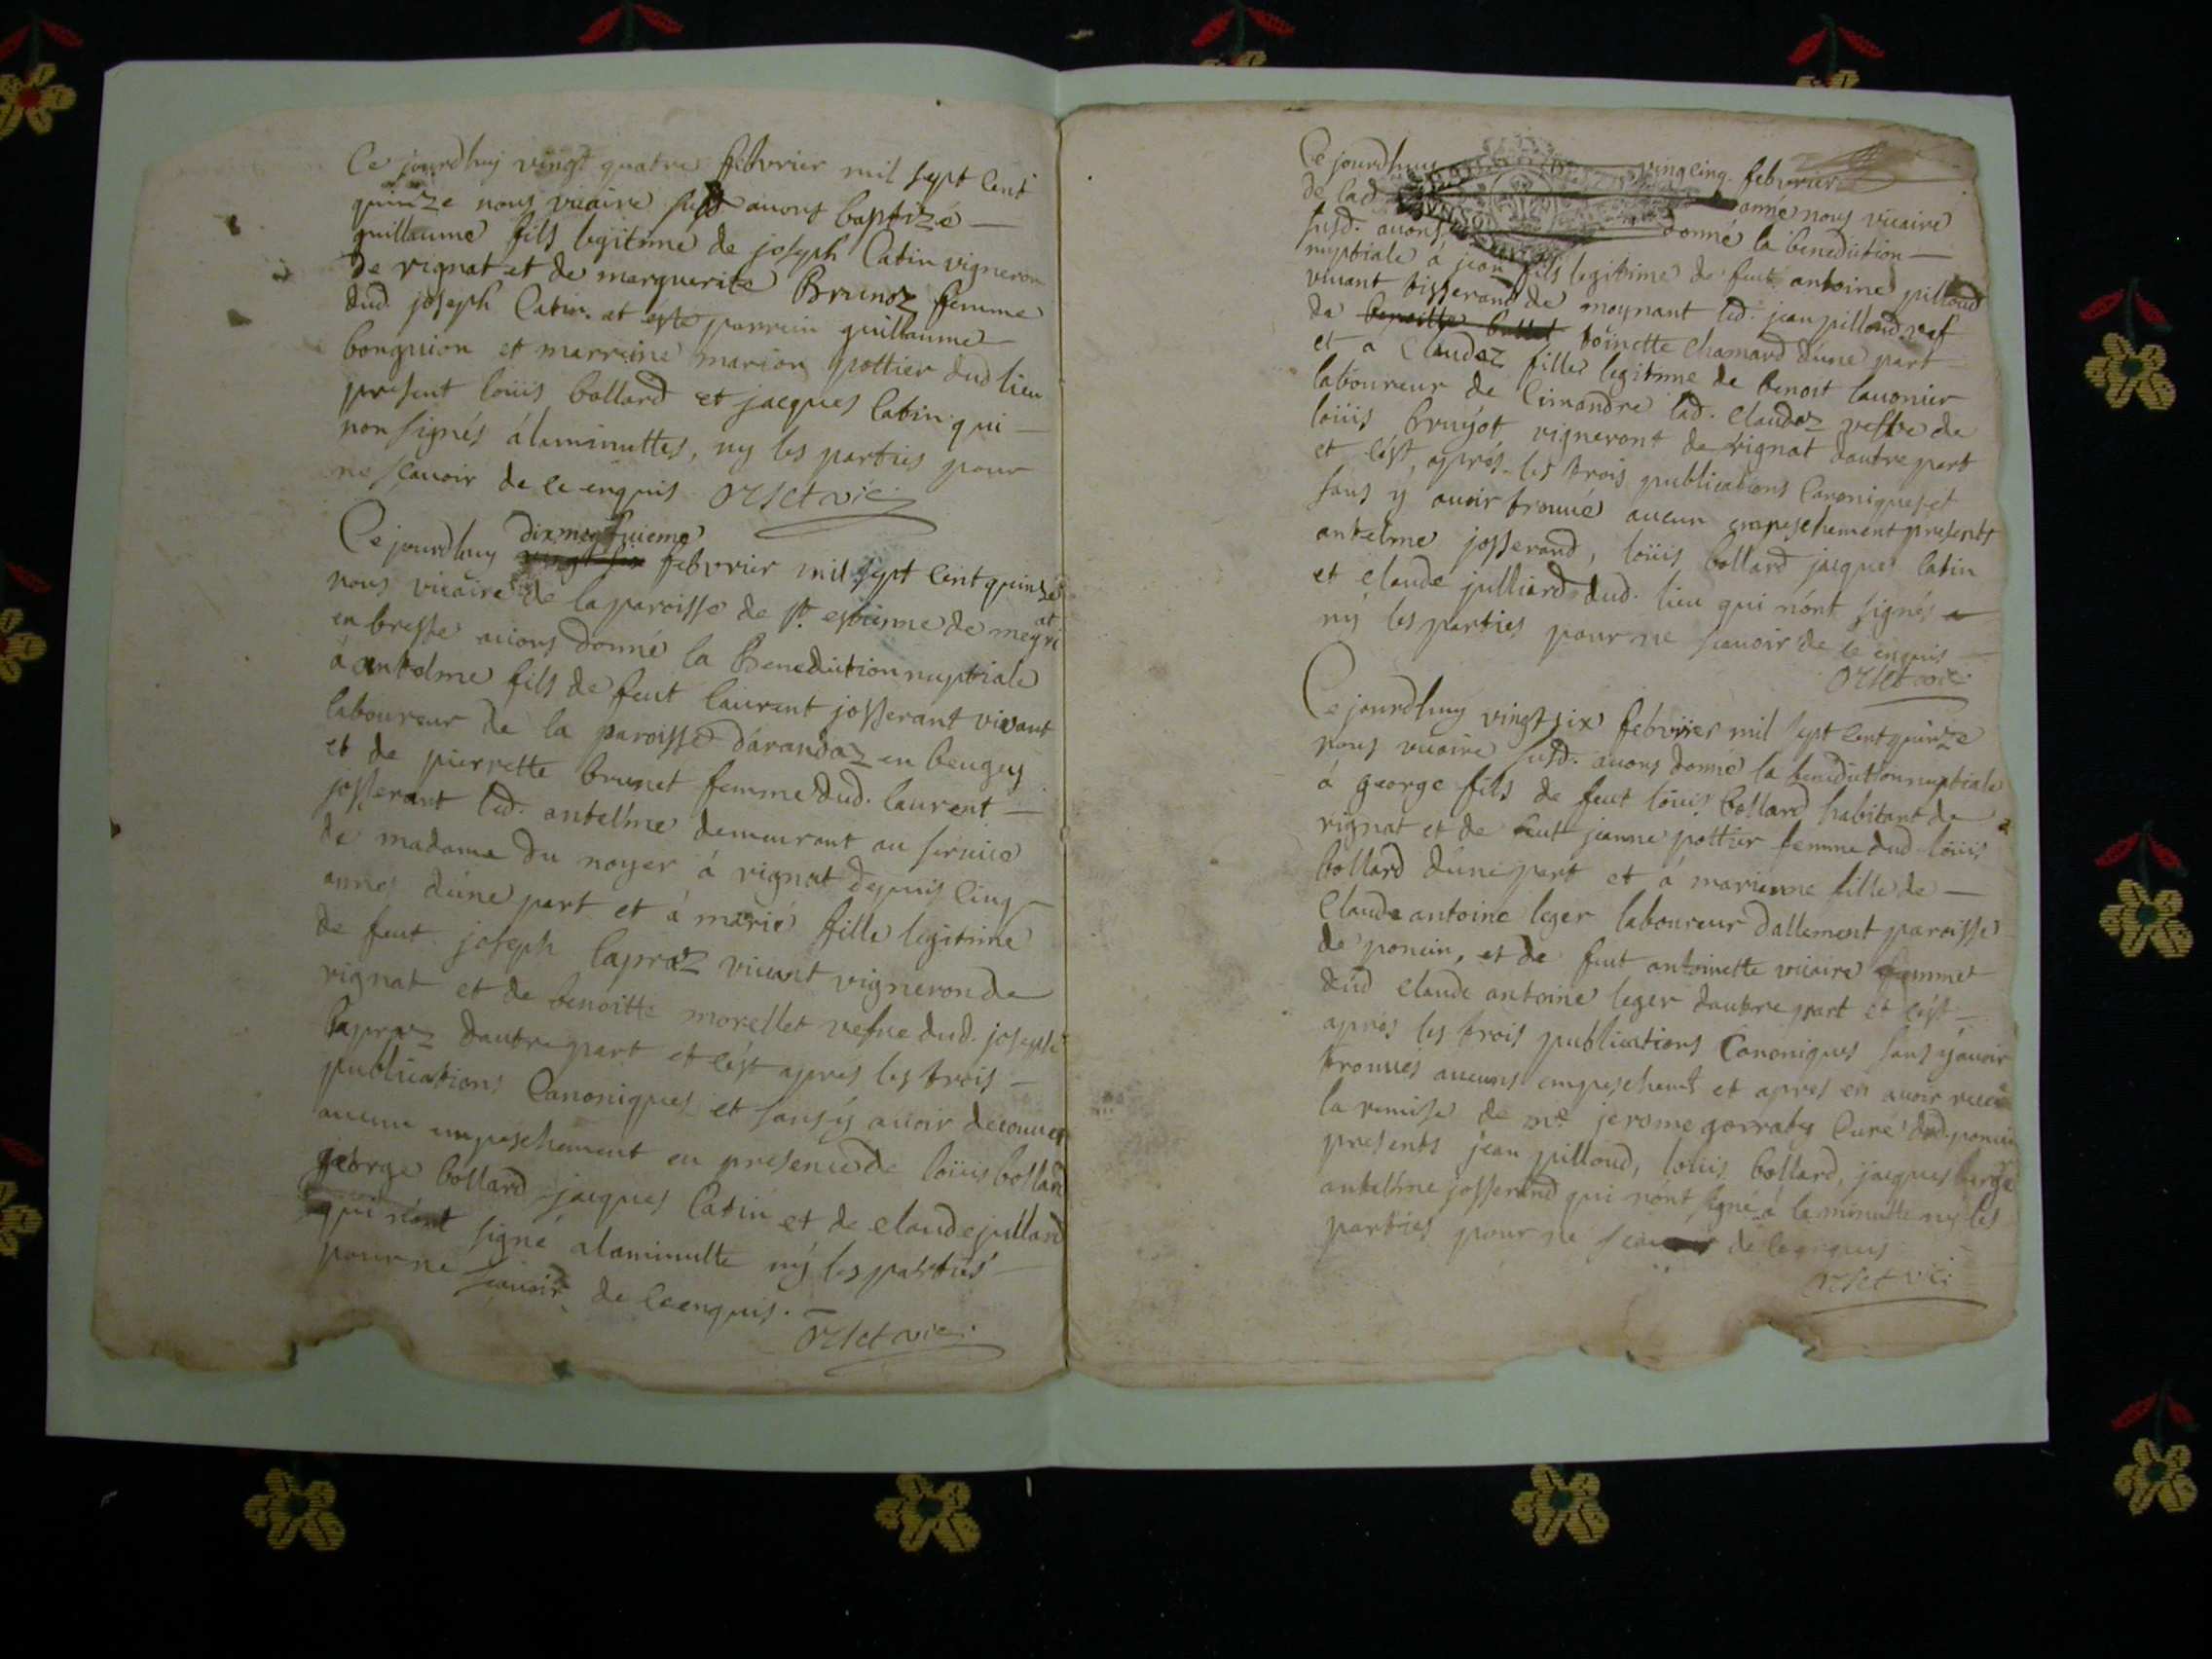 Ce jourdhuy vingt quatre febvrier mil sept cent
quinze nous vicaire susd avons baptizé
guillaume fils legitime de joseph Catin vigneron
de rignat et de marguerite Brunoz femme
dud. joseph Catin. et esté parrein guillaume
bonguion et marreine marion pottier dud lieu
present loüis bollard et jacques Catin qui
non signés á laminuttes, ny les parties pour
ne sçavoir de ce enquis Orset vic:
Ce jourdhuy dixneufvieme febvrier mil sept cent quinze
nous vicaire de la paroisse de st. estienne de meyriat
en bresse avions donné la Benediction nuptiale
á antelme fils de feut laurent josserant vivant
laboureur de la paroisse d'arandaz en beugey
et de pierrette brunet femme dud. laurent
josserant led. antelme demeurant au service
de madame du noyer á rignat depuis cinq
annes d'une part et á marié fille legitime
de feut joseph Capraz vivant vigneron de
rignat et de benoitte morellet vefve dud. joseph
Capraz dautre part et c'est apres les trois
publications Canoniques et sans ÿ avoir decouvert
aucun empeschement en presence de loüis bollard
george bollard jacques Catin et de claude jullard
qui n'ont signé alaminutte nÿ les parties
pour ne scavoir de ce enquis.
Orset vic:
Ce jourdhuy vingcinq febvrier
de lad année nous vicaire
susd. avons donné la benediction
nuptiale á jean fils legitime de feut antoine pilloud
vivant tisserand de moynant led. jean pilloud vef
de toinette chamard d'une part
et a Claudaz fille legitime de benoit lavonier
laboureur de Cimandre lad. Claudaz vefve de
loüis Bruyot vigneront de rignat dautre part
et c'est aprés les trois publications Canoniques et
sans ÿ avoir trouvé aucun empeschement presents
antelme josserand, loüis bollard jacques Catin
et claude julliard dud. lieu qui n'ont signés
nÿ les parties pour ne scavoir de ce enquis
Orset vic:
Ce jourdhuy vingt six febvrier mil sept cent quinze
nous vicaire susd. avons donné la benediction nuptiale
á george fils de feut loüis bollard habitant de
rignat et de feut jeanne pottier femme dud loüis
bollard d'une part et á marienne fille de
Claude antoine leger laboureur dallement paroisse
de poncin, et de feut antoinette vicaire femme
dud claude antoine leger dautre part et c'est
apres les trois publications Canoniques sans ÿ avoir
trouvés aucuns empeschemt et apres en avoir receu
la remise de mre jerome gorraty Curé dud. poncin
presents jean pilloud, loüis bollard, jacques
antelme josserand qui n'ont signé á la minutte ny les
parties pour ne de ce enquis
Orset vic: